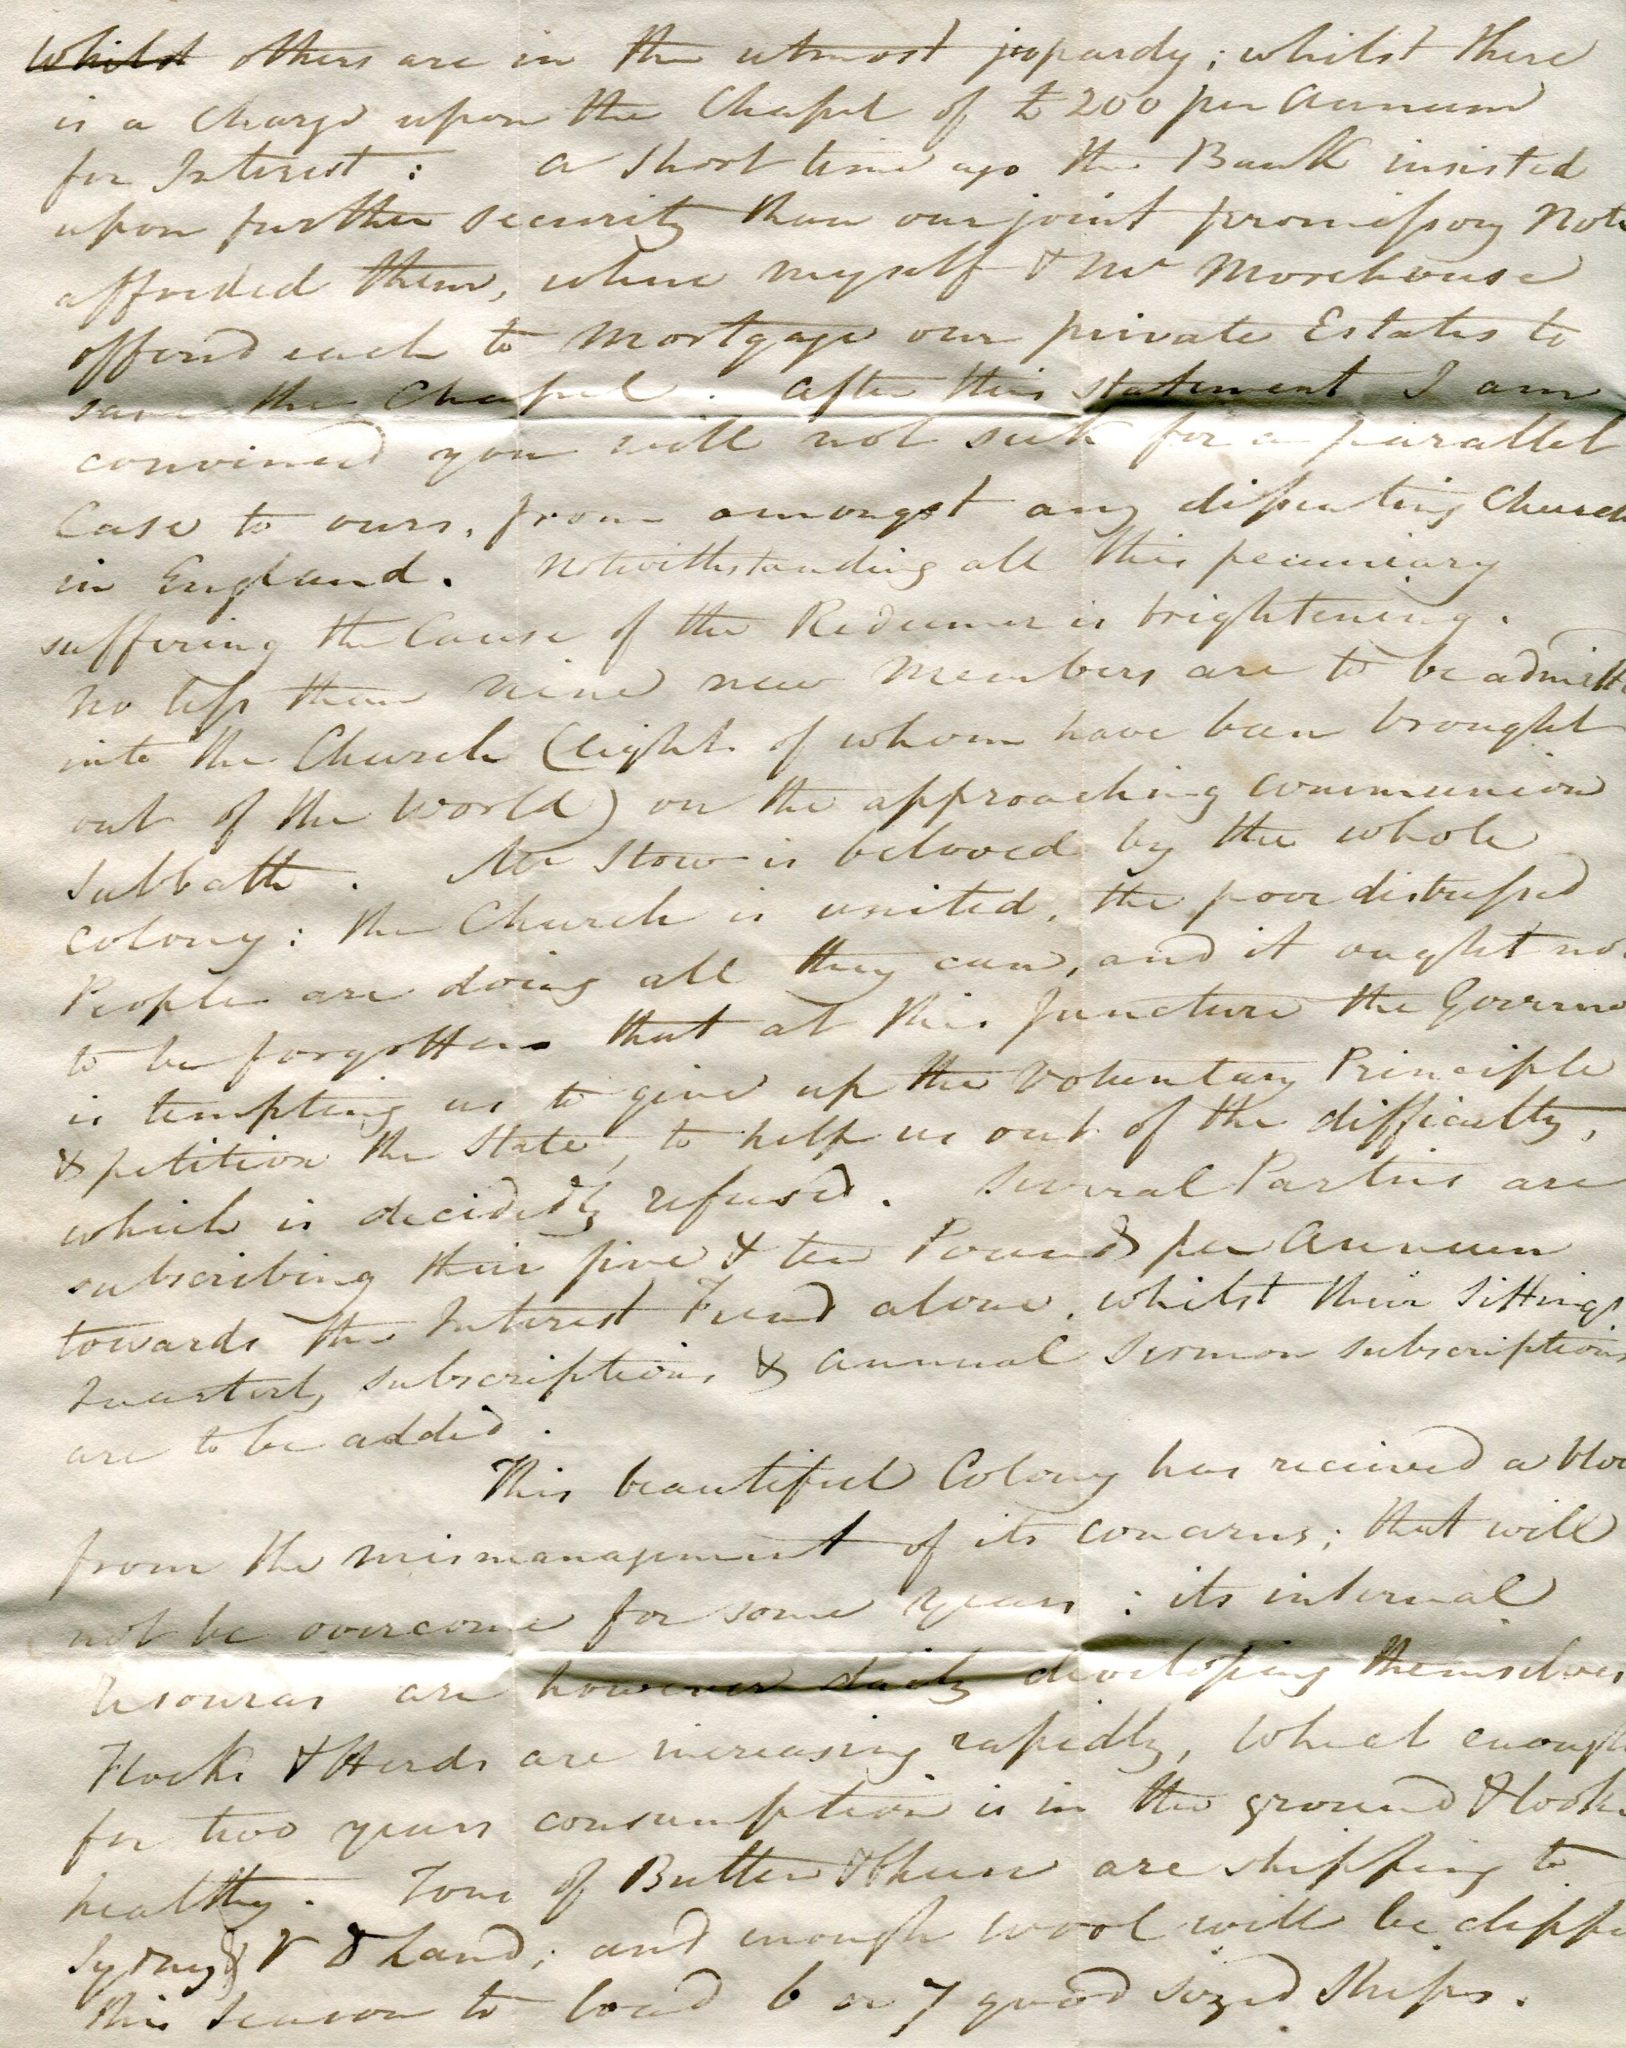 Whilst others are in the utmost jeopardy; whilst there
is a Charge upon the Chapel of £200 per Annum
for Interest: A short time ago the Bank insisted
upon further security than our joint promissory Note
afforded them, when myself & Mr Morehouse
offered each to Mortgage our private Estates to
save the Chapel. After this statement I am
convinced you will not seek for a parallel
Case to ours, from amongst any dissenting Church
in England. Notwithstanding all this pecuniary
suffering the Cause of the Redeemer is brightening.
No less than nine new Members are to be admitte
into the Church (eight of whom have been brought
out of the World) on the approaching communion
Sabbath. Mr Stow is beloved by the whole
Colony: the Church is united, the poor distressed
People are doing all they can, and it ought no
to be forgotten that at this Juncture the Governo
is tempting us to give up the Voluntary Principle
& petition the State, to help us out of the difficulty,
which is decidedly refused. Several Parties are
subscribing their five & ten Pounds per Annum
towards the Interest Fund alone, whilst their Sittings
Quarterly subscriptions & annual Sermon subscriptions
are to be added.
This beautiful Colony has received a blo
from the mismanagement of its concerns; that will
not be overcome for some years: its internal
resources are however daily developing themselves
Flocks & Herds are increasing rapidly, Wheat enough
for two years consumption is in the ground & looks
healthy. Tons of Butter & Cheese are shipping to
Sydney & V D Land; and enough wool will be clippe
this Season to load 6 or 7 good sized Ships.